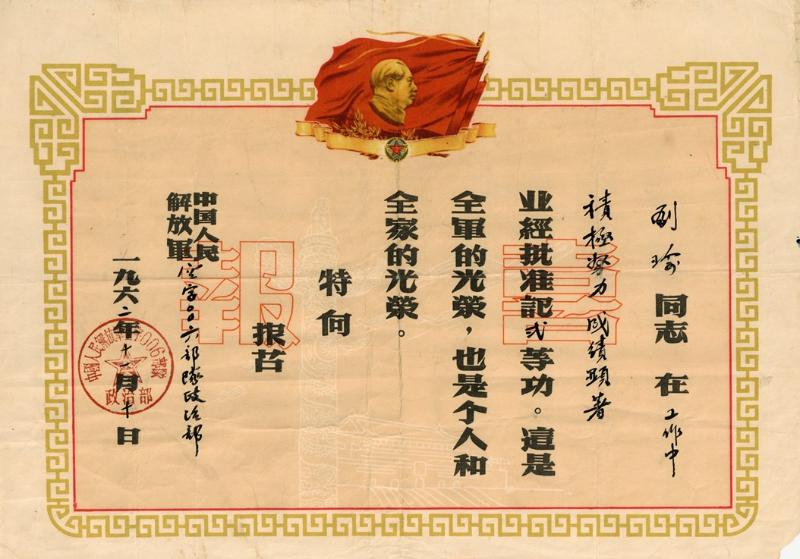 喜報
刘瑜同志在工作中
積極努力成績顕著
业經批准記弍等功。這是
全軍的光榮，也是个人和
全家的光榮。
特向
报
中国人民
解放軍空字00六部隊政治部
一九六二年十月日
中国人民解放軍006部隊
政治部